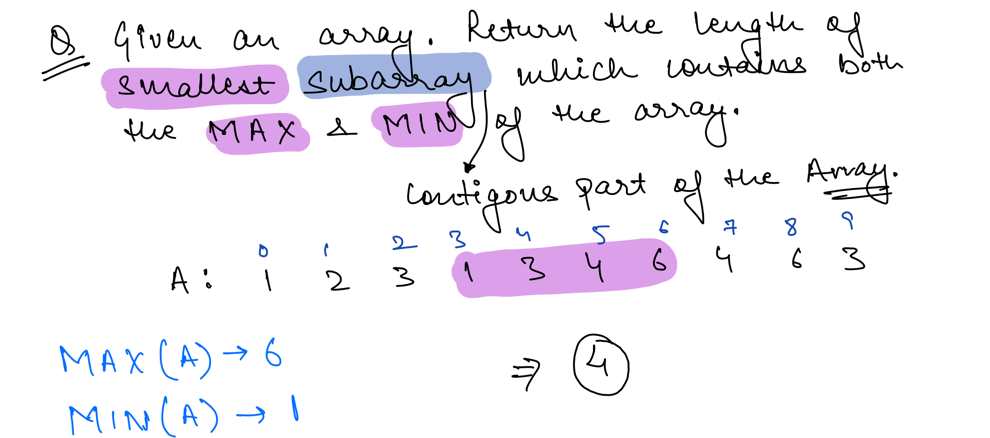 Q Given an array. Return the length of
smallest subarray which contains both
the MAX & MIN of the array.
Contigous part of the Array.
0 1 2 3 4 5 6 7 8 9
A: 1 2 3 1 3 4 6 4 6 3
MAX(A) → 6
⇒ 4
MIN(A) → 1